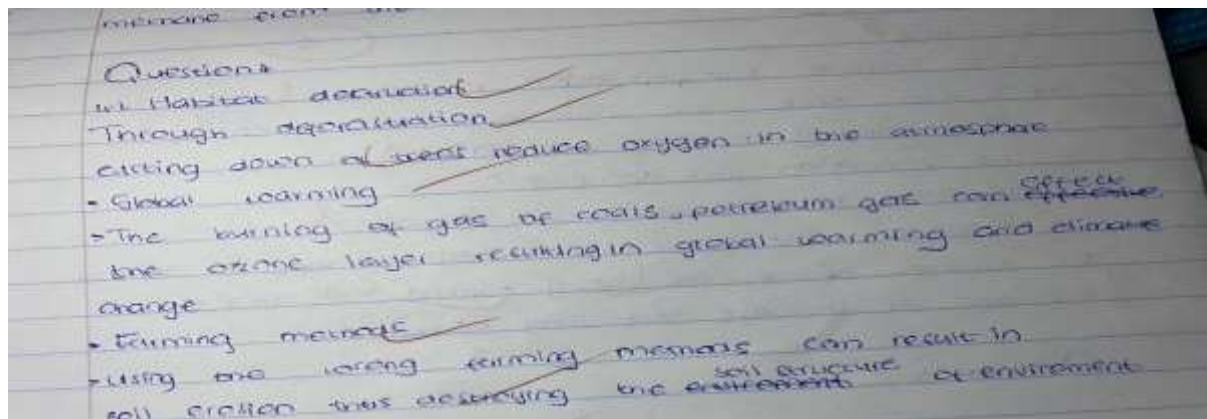 methane from the
Question 4
4.1 Habitat destruction
Through deforestation
cutting down of trees reduce oxygen in the atmosphere
- Global warming
- The burning of gas of coals, petroleum gas can effect
the ozone layer resulting in global warming and climate
change
- Farming methods
- Using the wrong farming methods can result in
soil erosion thus destroying the soil structure of enviroment